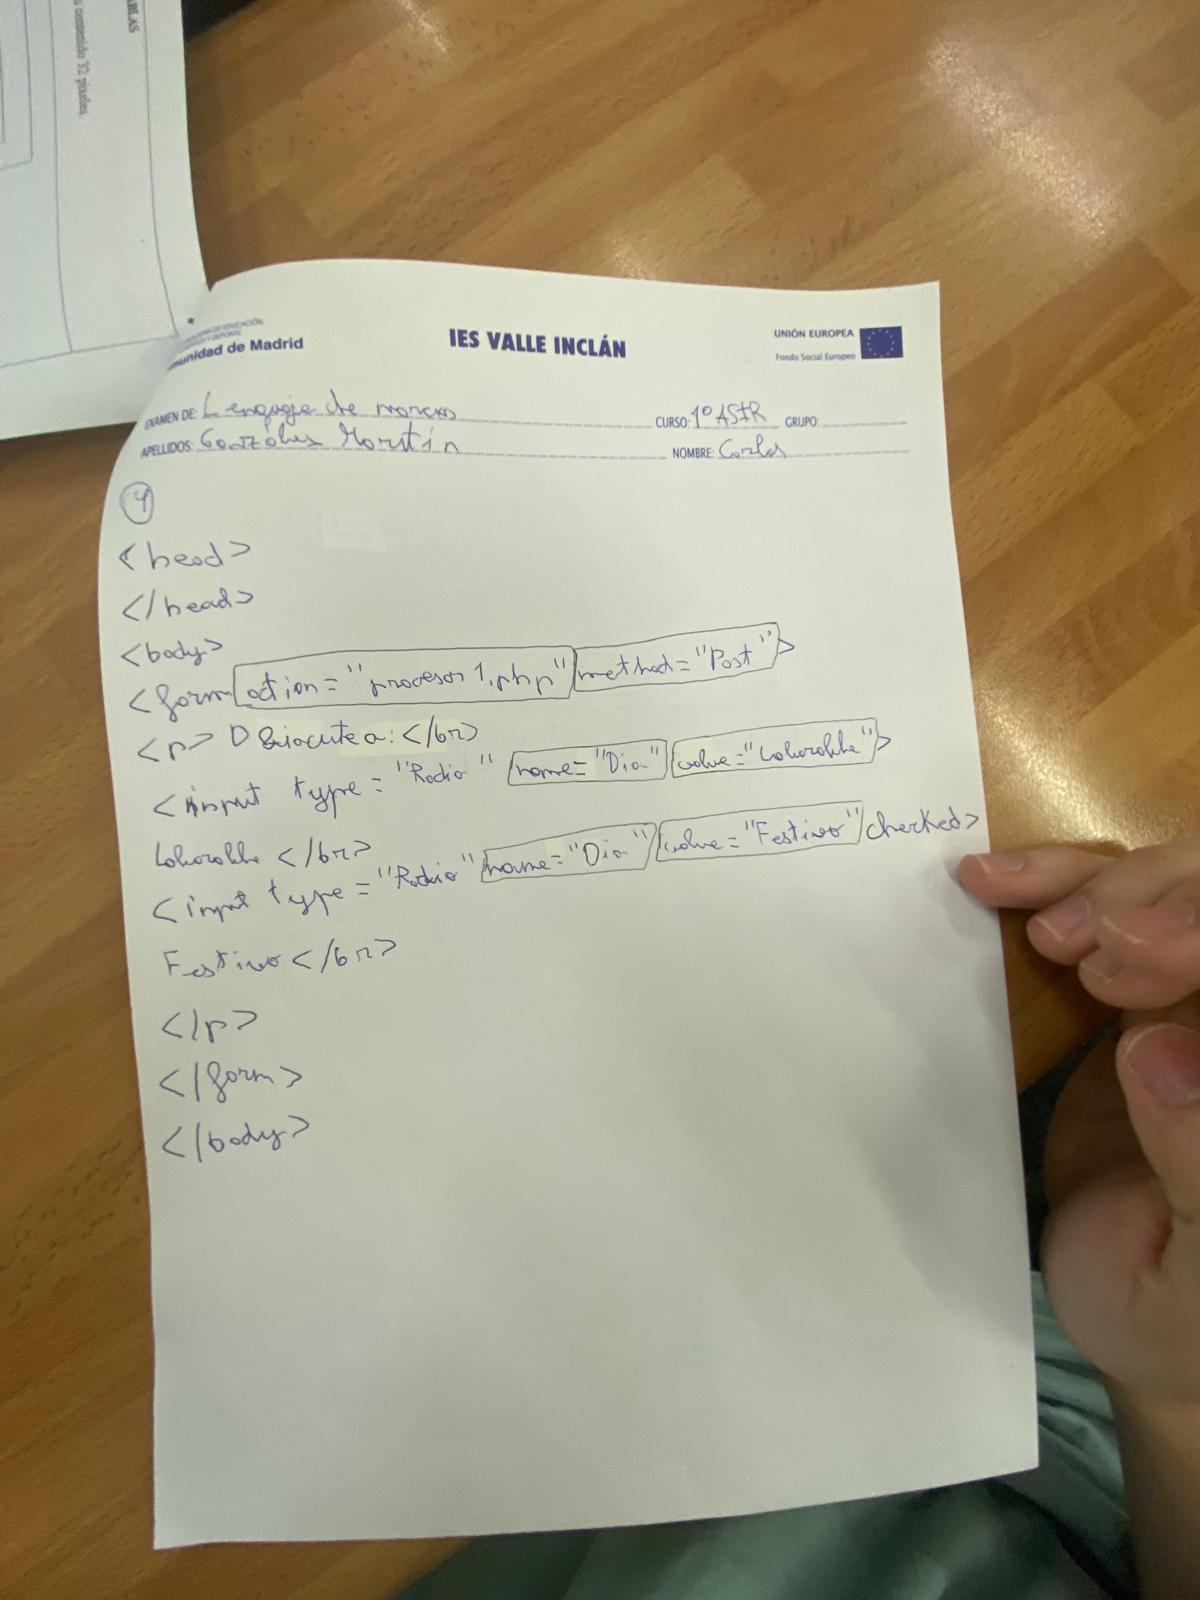 TABLAS
contenido 32 píxeles.
Comunidad de Madrid
IES VALLE INCLÁN
UNIÓN EUROPEA
Fondo Social Europeo
EXAMEN DE: Lenguaje de marcas
CURSO: 1º ASIR GRUPO:
APELLIDOS: González Martín
NOMBRE: Carlos
4
<head>
</head>
<body>
<form action="procesar1.php" method="Post">
<p> D </br>
<input type="Radio" name="Dia" value="Laborable">
Laborable </br>
<input type="Radio" name="Dia" value="Festivo" checked>
Festivo </br>
</p>
</form>
</body>